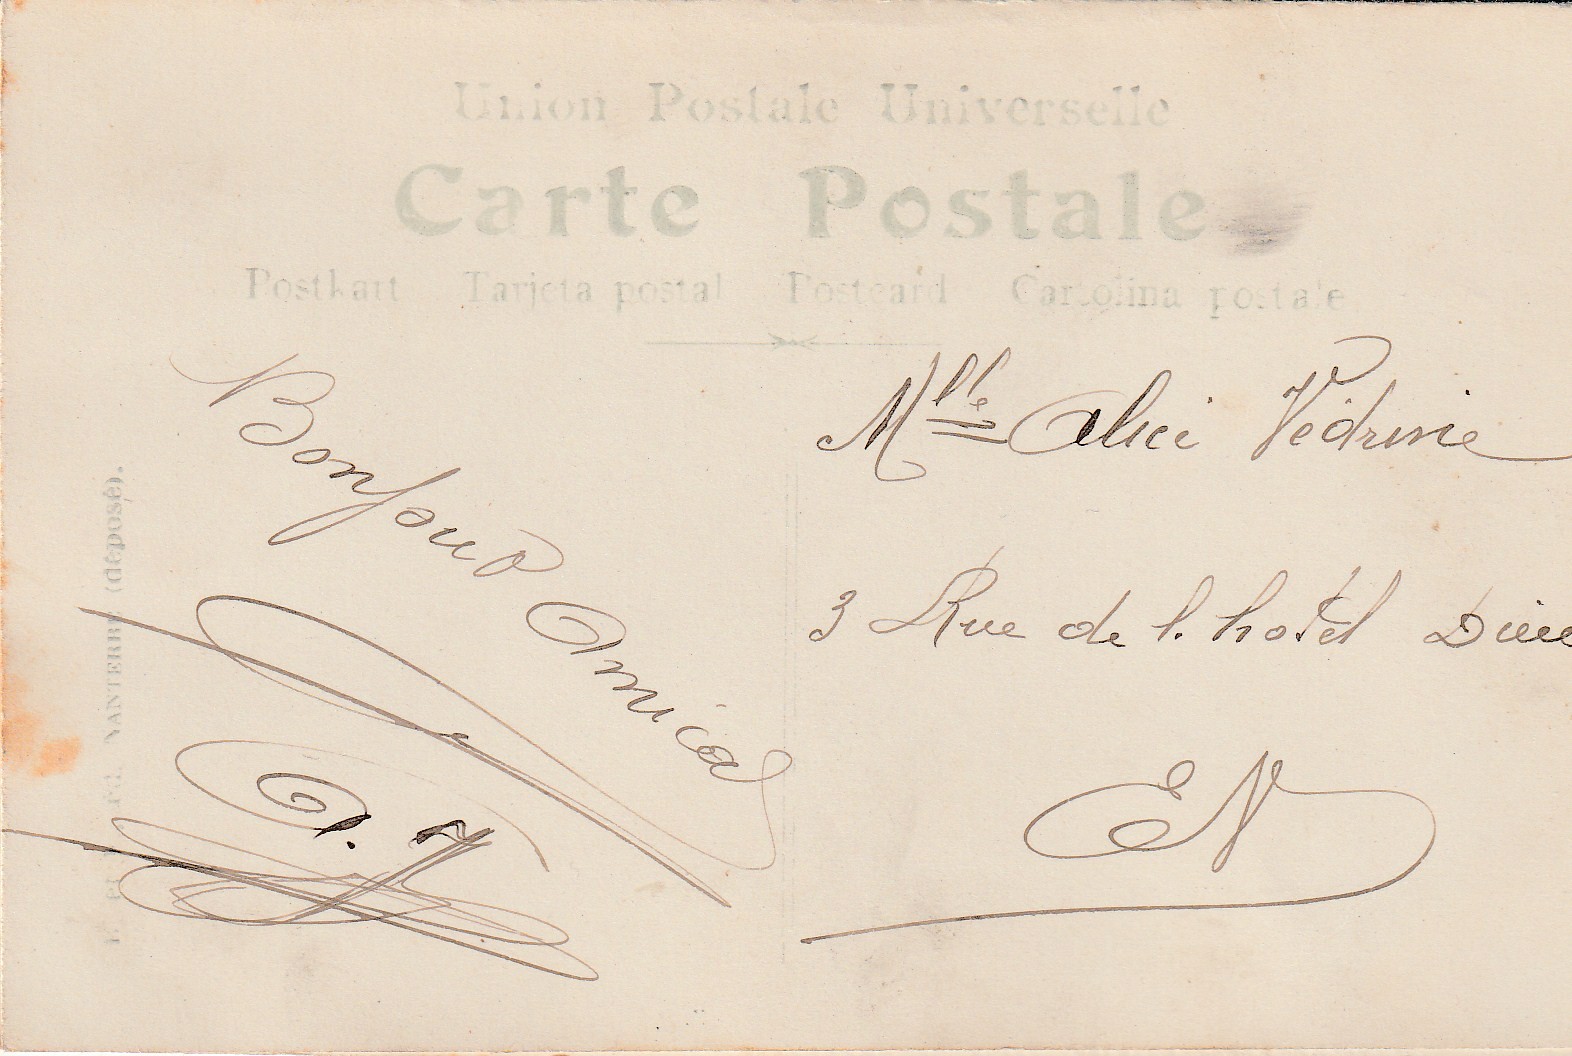 Union Postale Universelle
Carte Postale
Postkart Tarjeta postal Postcard Cartolina postale
Bonjour Amical
Mlle Alice Védrine
3 Rue de l. hotel Dieu
EV
NANTERRE (déposé).